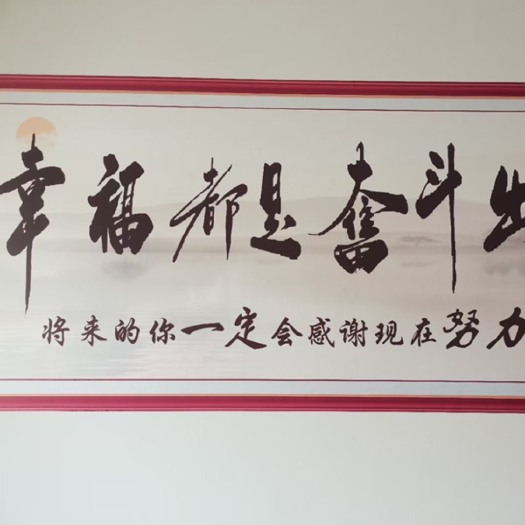 幸福都是奋斗出
将来的你一定会感谢现在努力